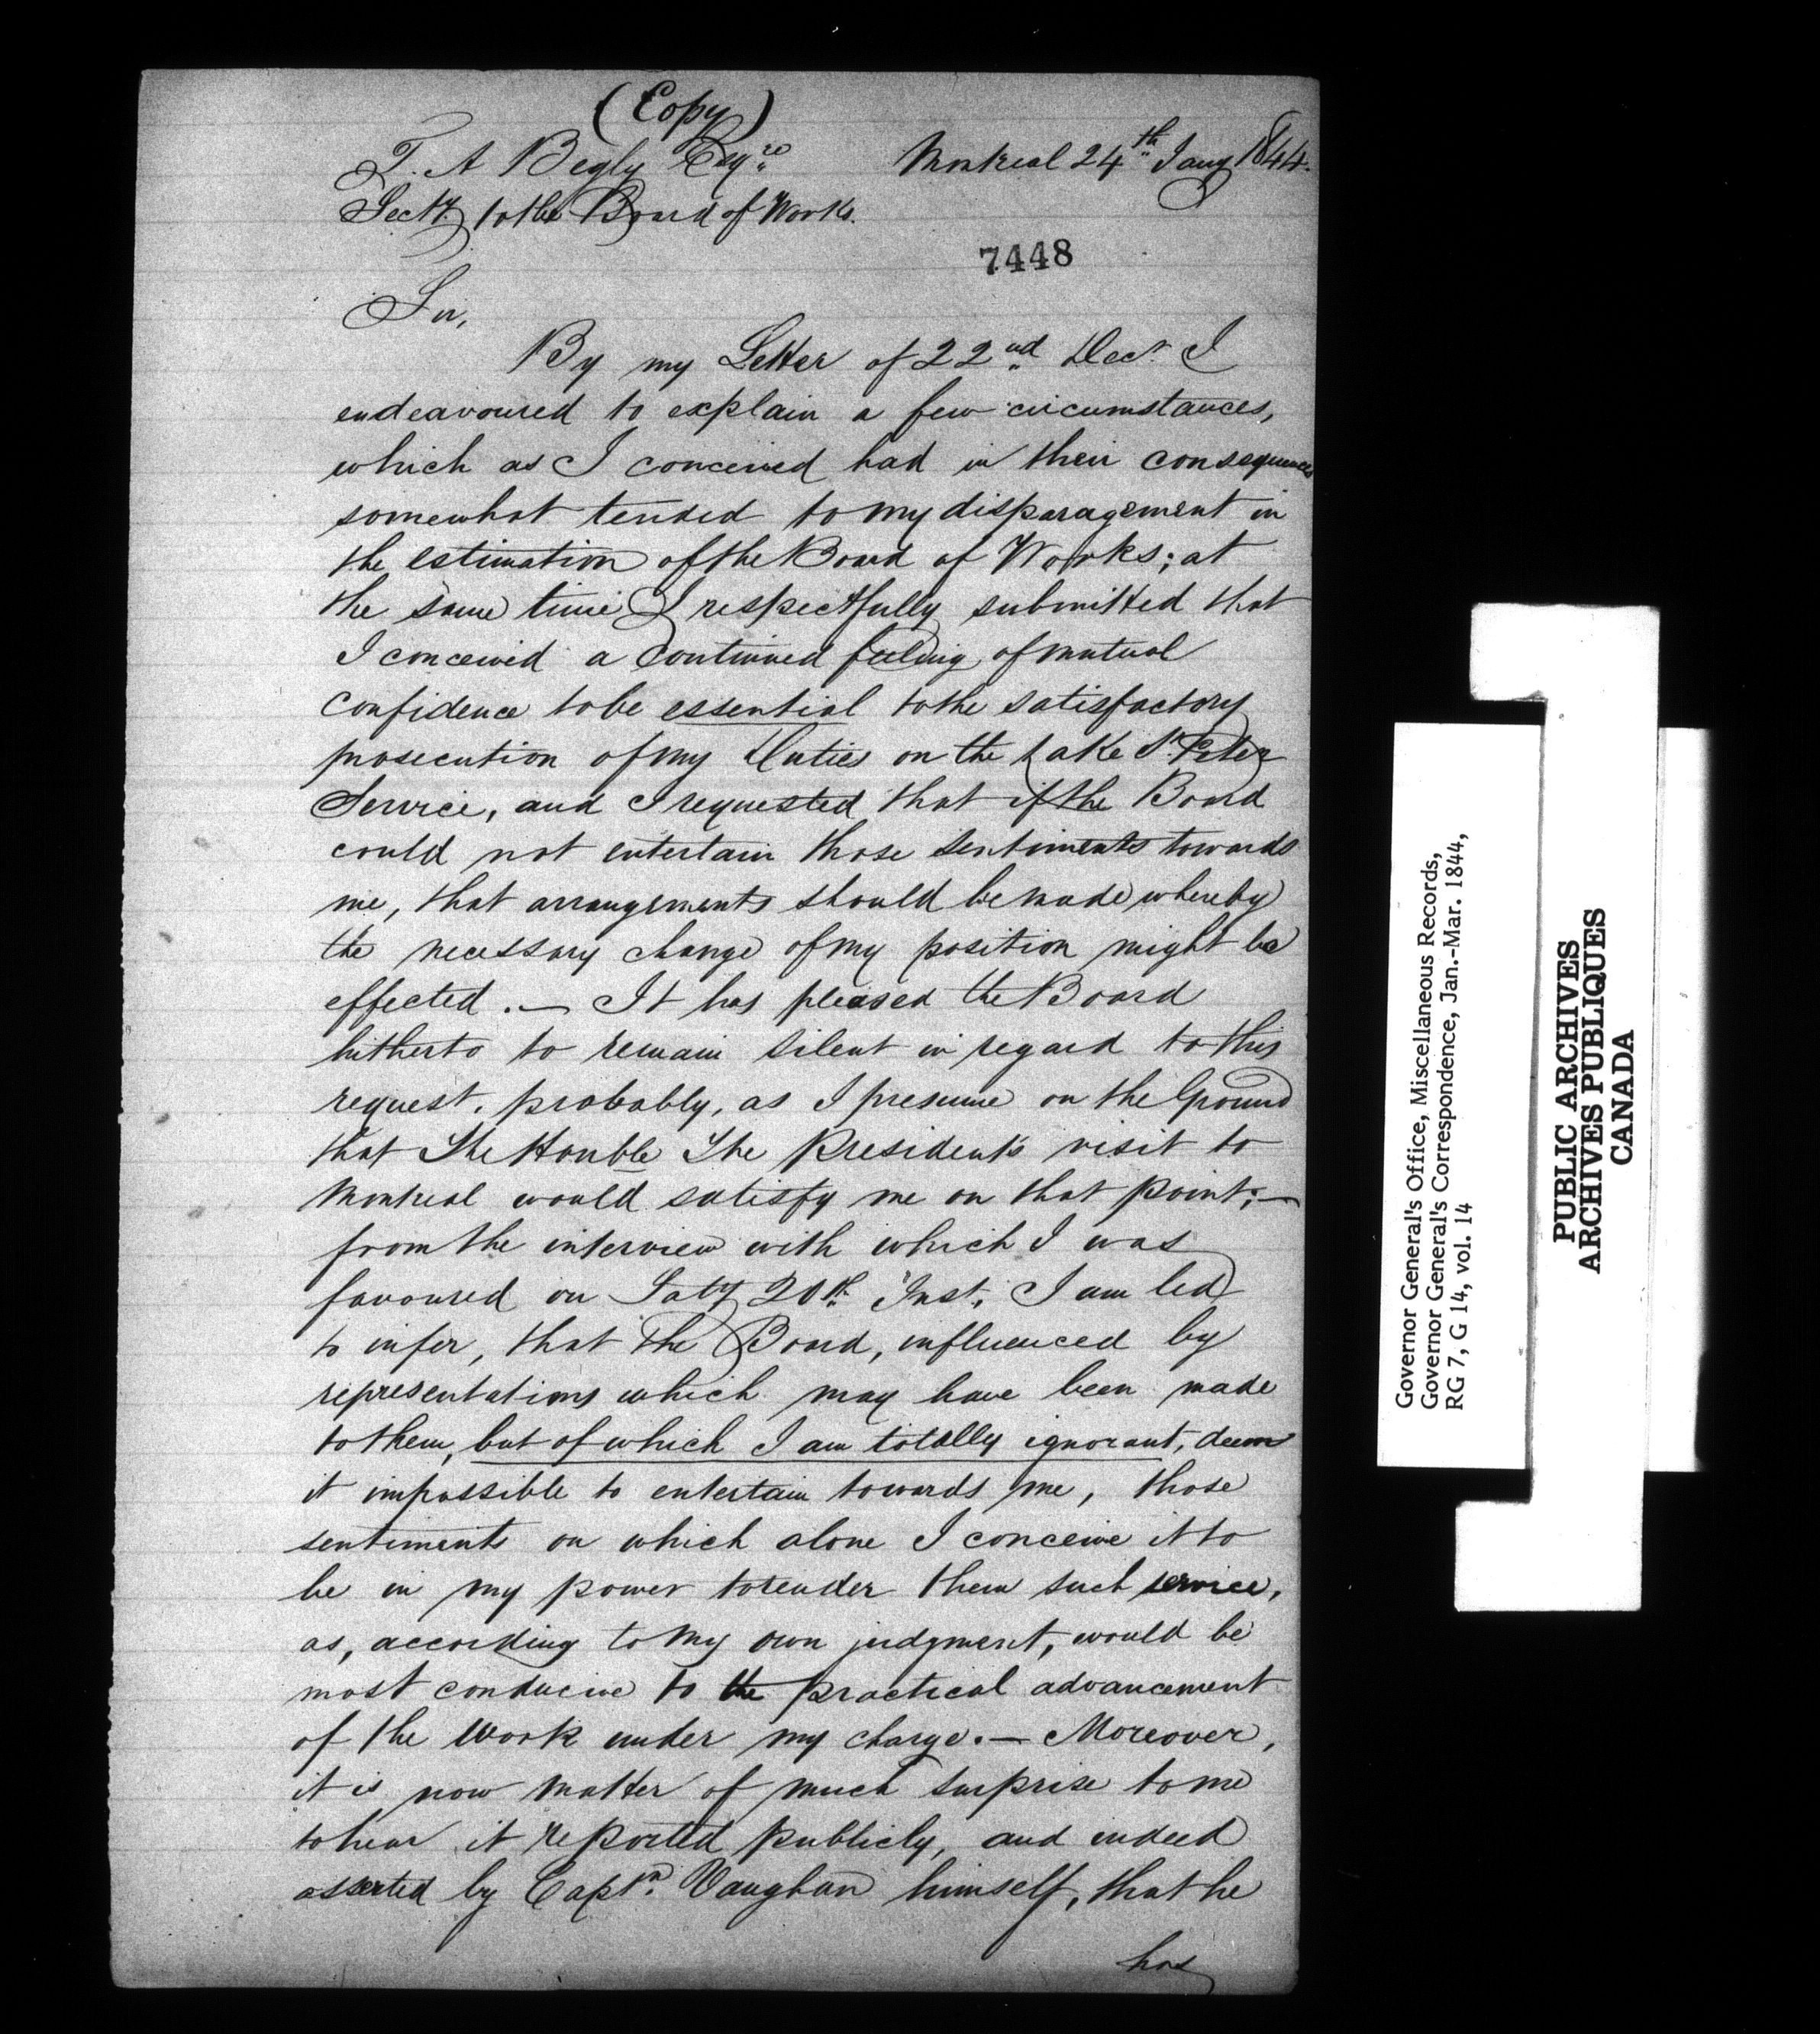 (Copy)
T. A Begly Esqre
Montreal 24th Jany 1844.
Secty to the Board of Works.
7448
Sir,
By my Letter of 22nd Decr. I
endeavoured to explain a few circumstances,
which as I conceived had in their consequences
somewhat tended to my disparagement in
the estimation of the Board of Works; at
the same time I respectfully submitted that
I conceived a continued feeling of mutual
confidence to be essential to the satisfactory
prosecution of my Duties on the Lake St. Peter
Service, and I requested that if the Board
could not entertain those sentiments towards
me, that arrangements should be made whereby
the necessary change of my position might be
effected. — It has pleased the Board
hitherto to remain silent in regard to this
request. probably, as I presume on the Ground
that The Honble The President's visit to
Montreal would satisfy me on that point; —
from the interview with which I was
favoured on Saty 20th Inst, I am led
to infer, that the Board, influenced by
representations which may have been made
to them, but of which I am totally ignorant, deem
it impossible to entertain towards me, those
sentiments on which alone I conceive it to
be in my power to render them such service,
as, according to my own judgment, would be
most conducive to the practical advancement
of the work under my charge. — Moreover,
it is now matter of much surprise to me
to hear it reported publicly, and indeed
asserted by Captn. Vaughan himself, that he
has
Governor General's Office, Miscellaneous Records,
Governor General's Correspondence, Jan.-Mar. 1844,
RG 7, G 14, vol. 14
PUBLIC ARCHIVES
ARCHIVES PUBLIQUES
CANADA